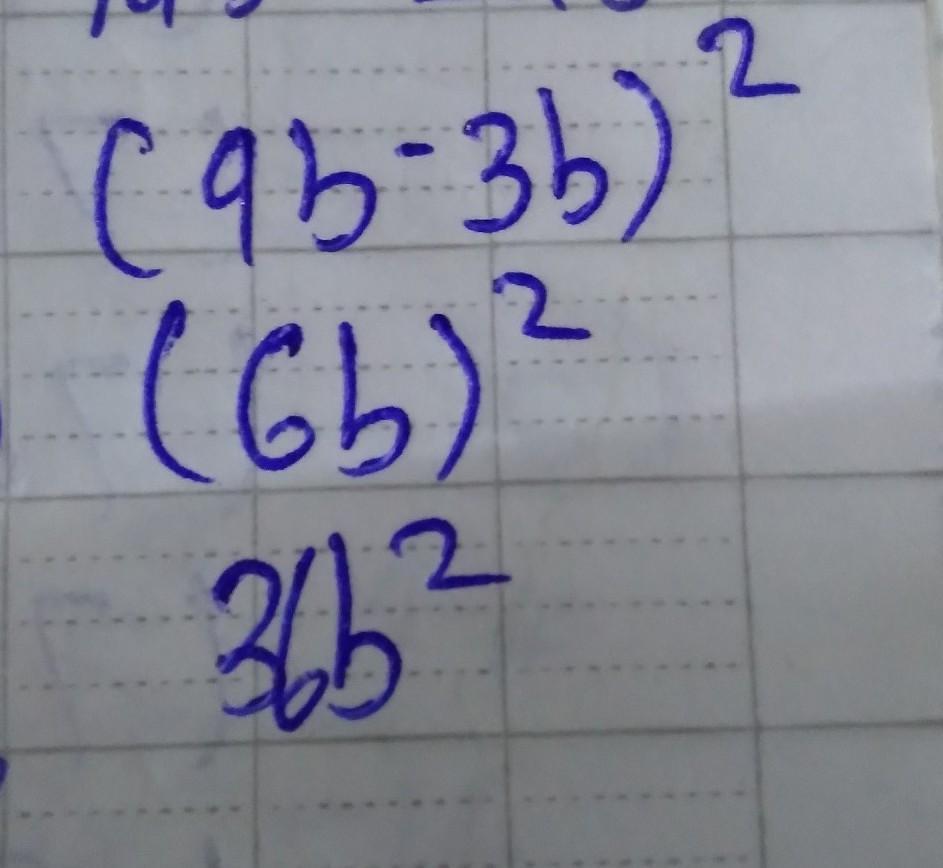 (9b-3b)²
(6b)²
36b²